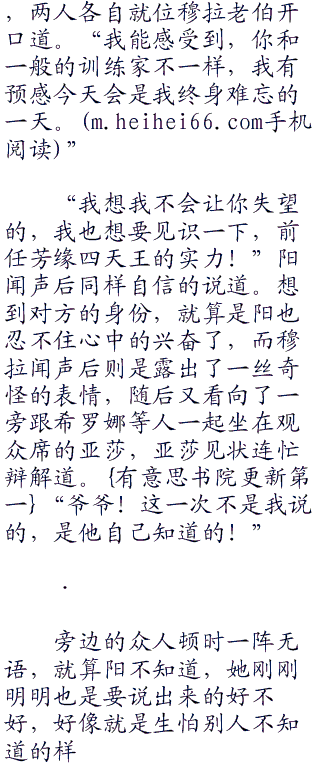 ，两人各自就位穆拉老伯开
口道。“我能感受到，你和
一般的训练家不一样，我有
预感今天会是我终身难忘的
一天。(m.heihei66.com手机
阅读)”
“我想我不会让你失望
的，我也想要见识一下，前
任芳缘四天王的实力！”阳
闻声后同样自信的说道。想
到对方的身份，就算是阳也
忍不住心中的兴奋了，而穆
拉闻声后则是露出了一丝奇
怪的表情，随后又看向了一
旁跟希罗娜等人一起坐在观
众席的亚莎，亚莎见状连忙
辩解道。{有意思书院更新第
一}“爷爷！这一次不是我说
的，是他自己知道的！”
．
旁边的众人顿时一阵无
语，就算阳不知道，她刚刚
明明也是要说出来的好不
好，好像就是生怕别人不知
道的样